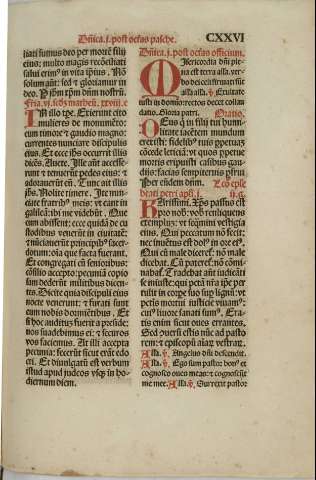 Dñica .j. post octas pasche.
CXXVI
liati sumus deo per mortē filij
eius: multo magis recōciliati
salui erim⁹ in vita ip̄ius. Nō
solum aūt: sed ⁊ gloriamur in
deo. Per dñm nostrū.
In illo tꝑe. Exierunt cito
mulieres de monumēto:
cum timore ⁊ gaudio magno:
currentes nunciare discipulis
eius. Et ecce ihs occurrit illis
dicēs. Auete. Ille aūt accesse-
runt ⁊ tenuerūt pedes eius: ⁊
adorauerūt eū. Tunc ait illis
ihs. Nolite timere. Ite nun-
ciate fratrib⁹ meis: vt eant in
galileā: ibi me videbūt. Que
cum abissent: ecce quidā de cu-
stodibus venerūt in ciuitatē:
⁊ nūciauerūt principib⁹ sacer-
dotum: oīa que facta fuerāt.
Et congregati cū senioribus:
cōsilio accepto: pecuniā copio
sam dederūt militibus dicen-
tes. Dicite quia discipuli eius
nocte venerunt: ⁊ furati sunt
eum nobis dormiētibus. Et
si hoc auditū fuerit a preside:
nos suadebimus ei: ⁊ securos
vos faciemus. At illi accepta
pecunia: fecerūt sicut erāt edo
cti. Et diuulgatū est verbum
istud apud iudeos vsq₃ in ho-
diernum diem.
Dñica .j. post octas
Misericordia dñi ple
na est terra alla. ver-
bo dei celi firmati sūt
alla alla. Exultate
iusti in domīo: rectos decet collau
datio. Gloria patri. Oratio.
Deus q̇ in filij tui hu-
militate iacētem mundum
erexisti: fidelib⁹ tuis ppetuā
cōcede leticiā: vt quos ppetue
mortis eripuisti casibus gau-
dijs: facias sempiternis pfrui.
Per eūdem dñm.
beati petri apli
Karissimi. Xp̄s passus est
pro nob̄: vob̄ relinquens
exemplum: vt seq̄mini vestigia
eius. Qui peccatum nō fecit:
nec inuētus est dol⁹ in ore ei⁹.
Qui cū male diceret̄: nō male
dicebat. Cū pateret̄: nō cōmi-
nabat̄. Tradebat aūt iudicāti
se iniuste: qui petā nr̄a ip̄e per
tulit in corpe suo sup lignū: vt
petis mortui iusticie viuam⁹:
cui⁹ liuore sanati sum⁹. Era-
tis enim sicut oues errantes.
Sed conuersi estis nūc ad pasto
rem: ⁊ episcopū aīaꝝ vestraꝝ.
Alla. Angelus dñi descendit.
Alla. Ego sum pastor bon⁹ et
cognosco oues meas: ⁊ cognoscūt
me mee. Alla. Surrexit pastor